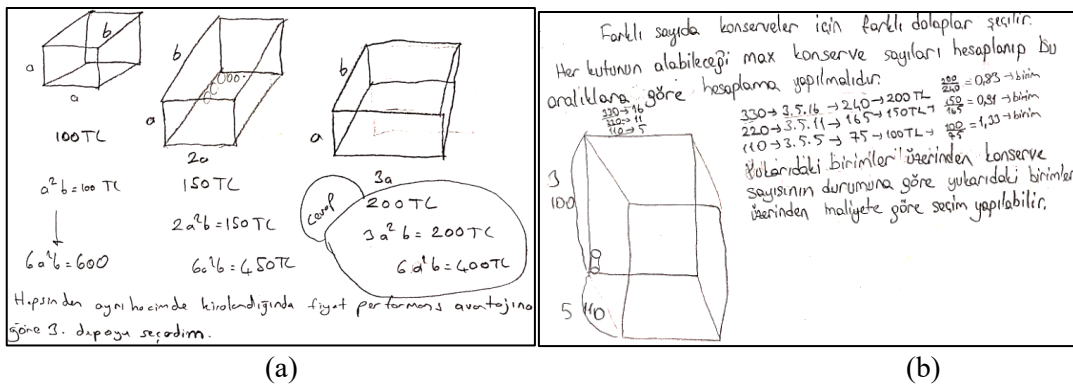 b
a
a
100 TL
a²b = 100 TL
6a²b = 600
b
a
2a
150 TL
2a²b = 150 TL
6a²b = 450 TL
b
a
3a
cevap
200 TL
3a²b = 200 TL
6a²b = 400 TL
Hepsinden aynı hacimde kiralandığında fiyat performans avantajına
göre 3. depoyu seçerdim.
(a)
Farklı sayıda konserveler için farklı dolaplar seçilir.
Her kutunun alabileceği max konserve sayıları hesaplanıp bu
aralıklara göre hesaplama yapılmalıdır.
330→16
220→11
110→5
330→3.5.16→240→200 TL 200/240 = 0,83→birim
220→3.5.11→165→150 TL→ 150/165 = 0,91→birim
110→3.5.5→75→100 TL→ 100/75 = 1,33→birim
Yukarıdaki birimler üzerinden konserve
sayısının durumuna göre yukarıdaki birimler
üzerinden maliyete göre seçim yapılabilir.
3
100
5 110
(b)